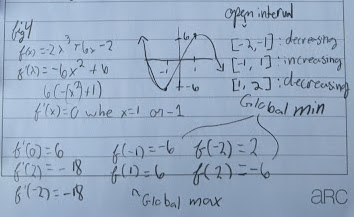 fig 4
f(x)=-2x³+6x-2
f'(x)=-6x²+6
6(-(x²)+1)
f'(x)=0 whe x=1 or -1
6
-1
1
-6
open interval
[-2,-1]: decreasing
[-1, 1]: increasing
[1, 2]: decreasing
Global min
f'(0)=6
f'(2)=-18
f'(-2)=-18
f(-1)=-6
f(1)=6
f(-2)=2
f(2)=-6
Global max
ARC